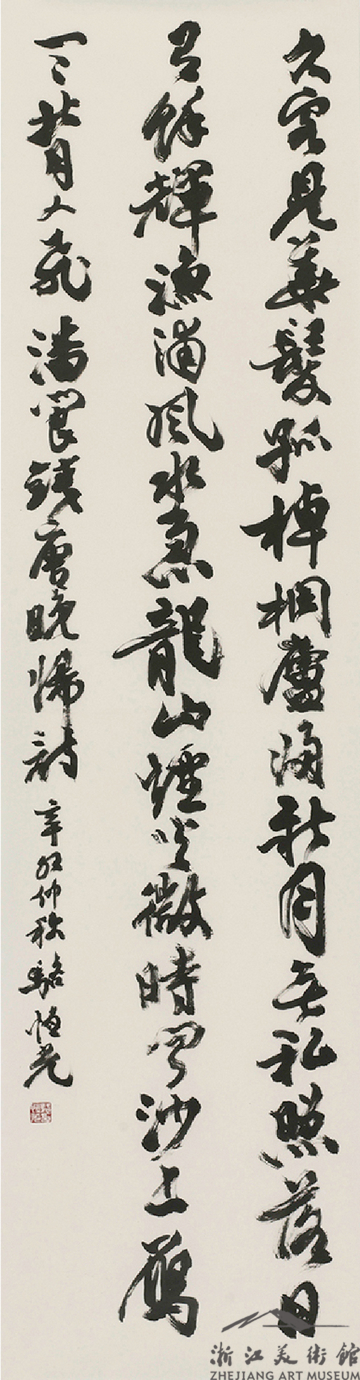 久客見華髮孤棹桐廬歸新月無私照落日
有餘輝漁浦風水急龍山煙火微時聞沙上鴈
一一背人飛 潘閬錢唐晚歸詩 辛卯仲秋駱恒光
浙江美術館
ZHEJIANG ART MUSEUM